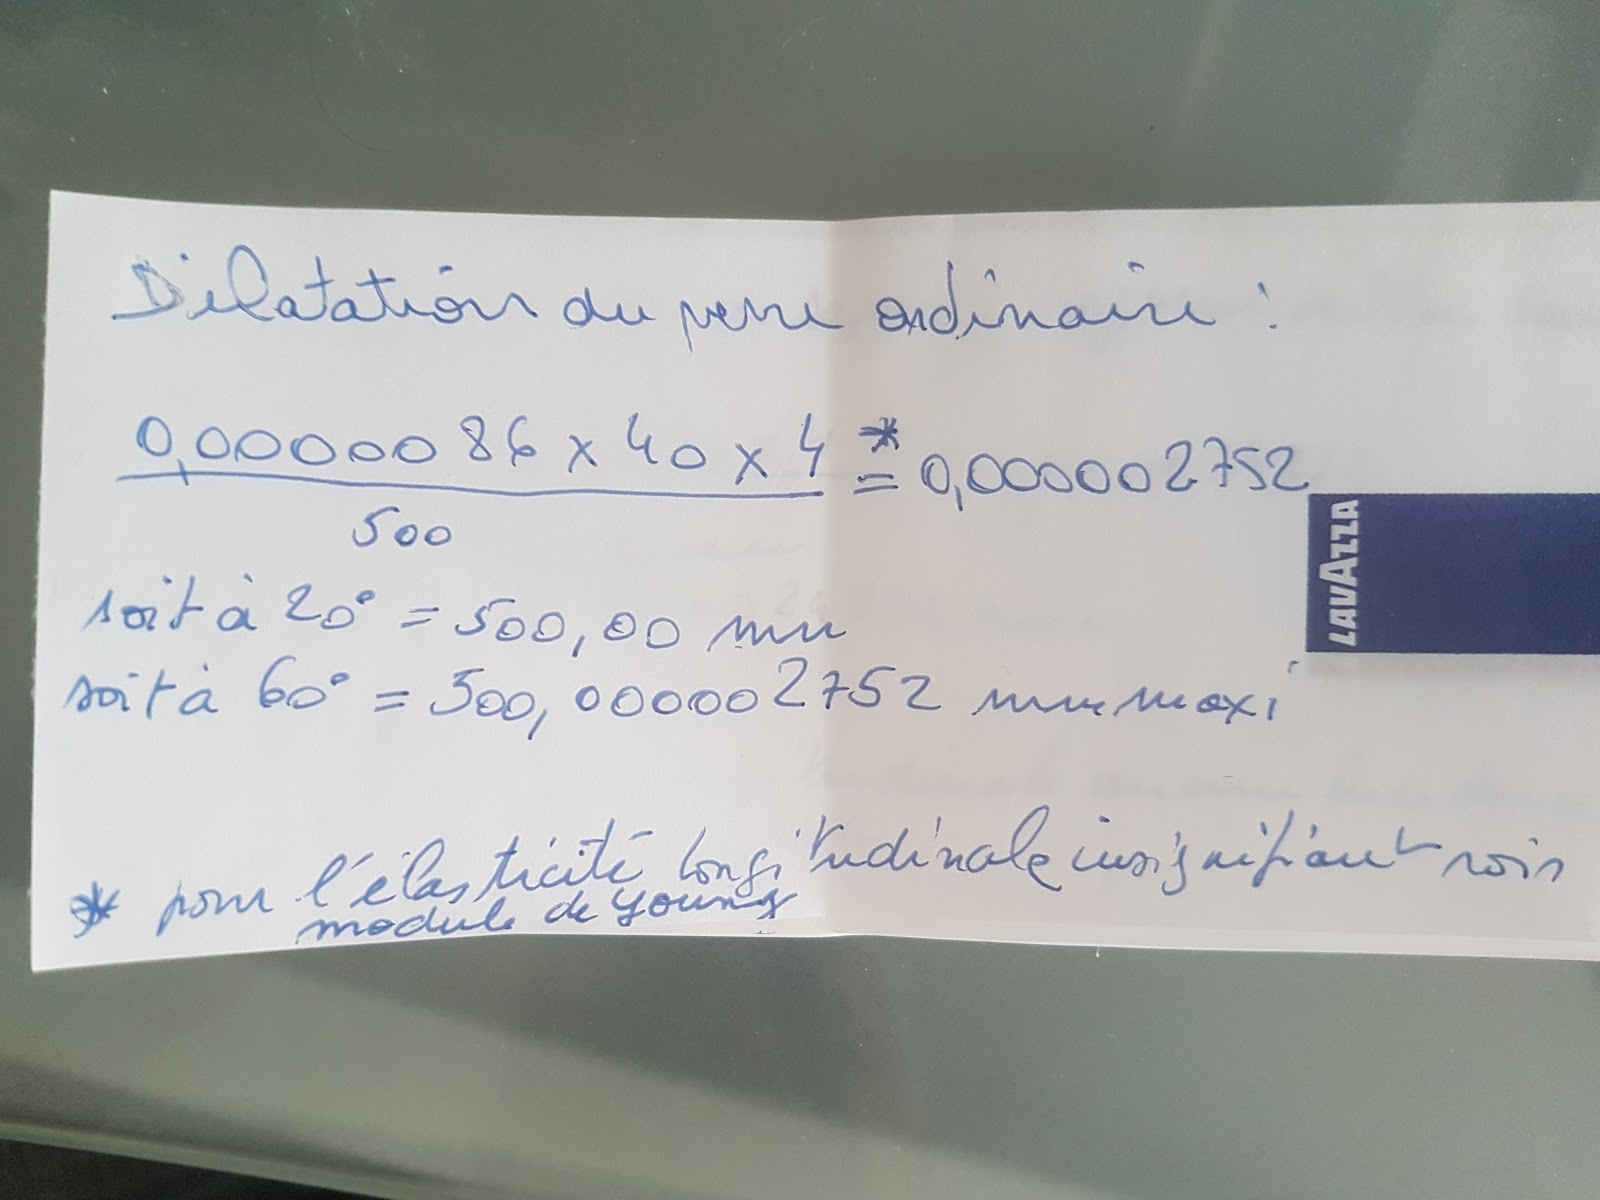 Dilatation du verre ordinaire :
0,0000086 x 40 x 4 * = 0,000002752
500
soit à 20° = 500,00 mm
soit à 60° = 500,000002752 mm maxi
* pour l'élasticité longitudinale insignifiant voir
module de young
LAVAZZA